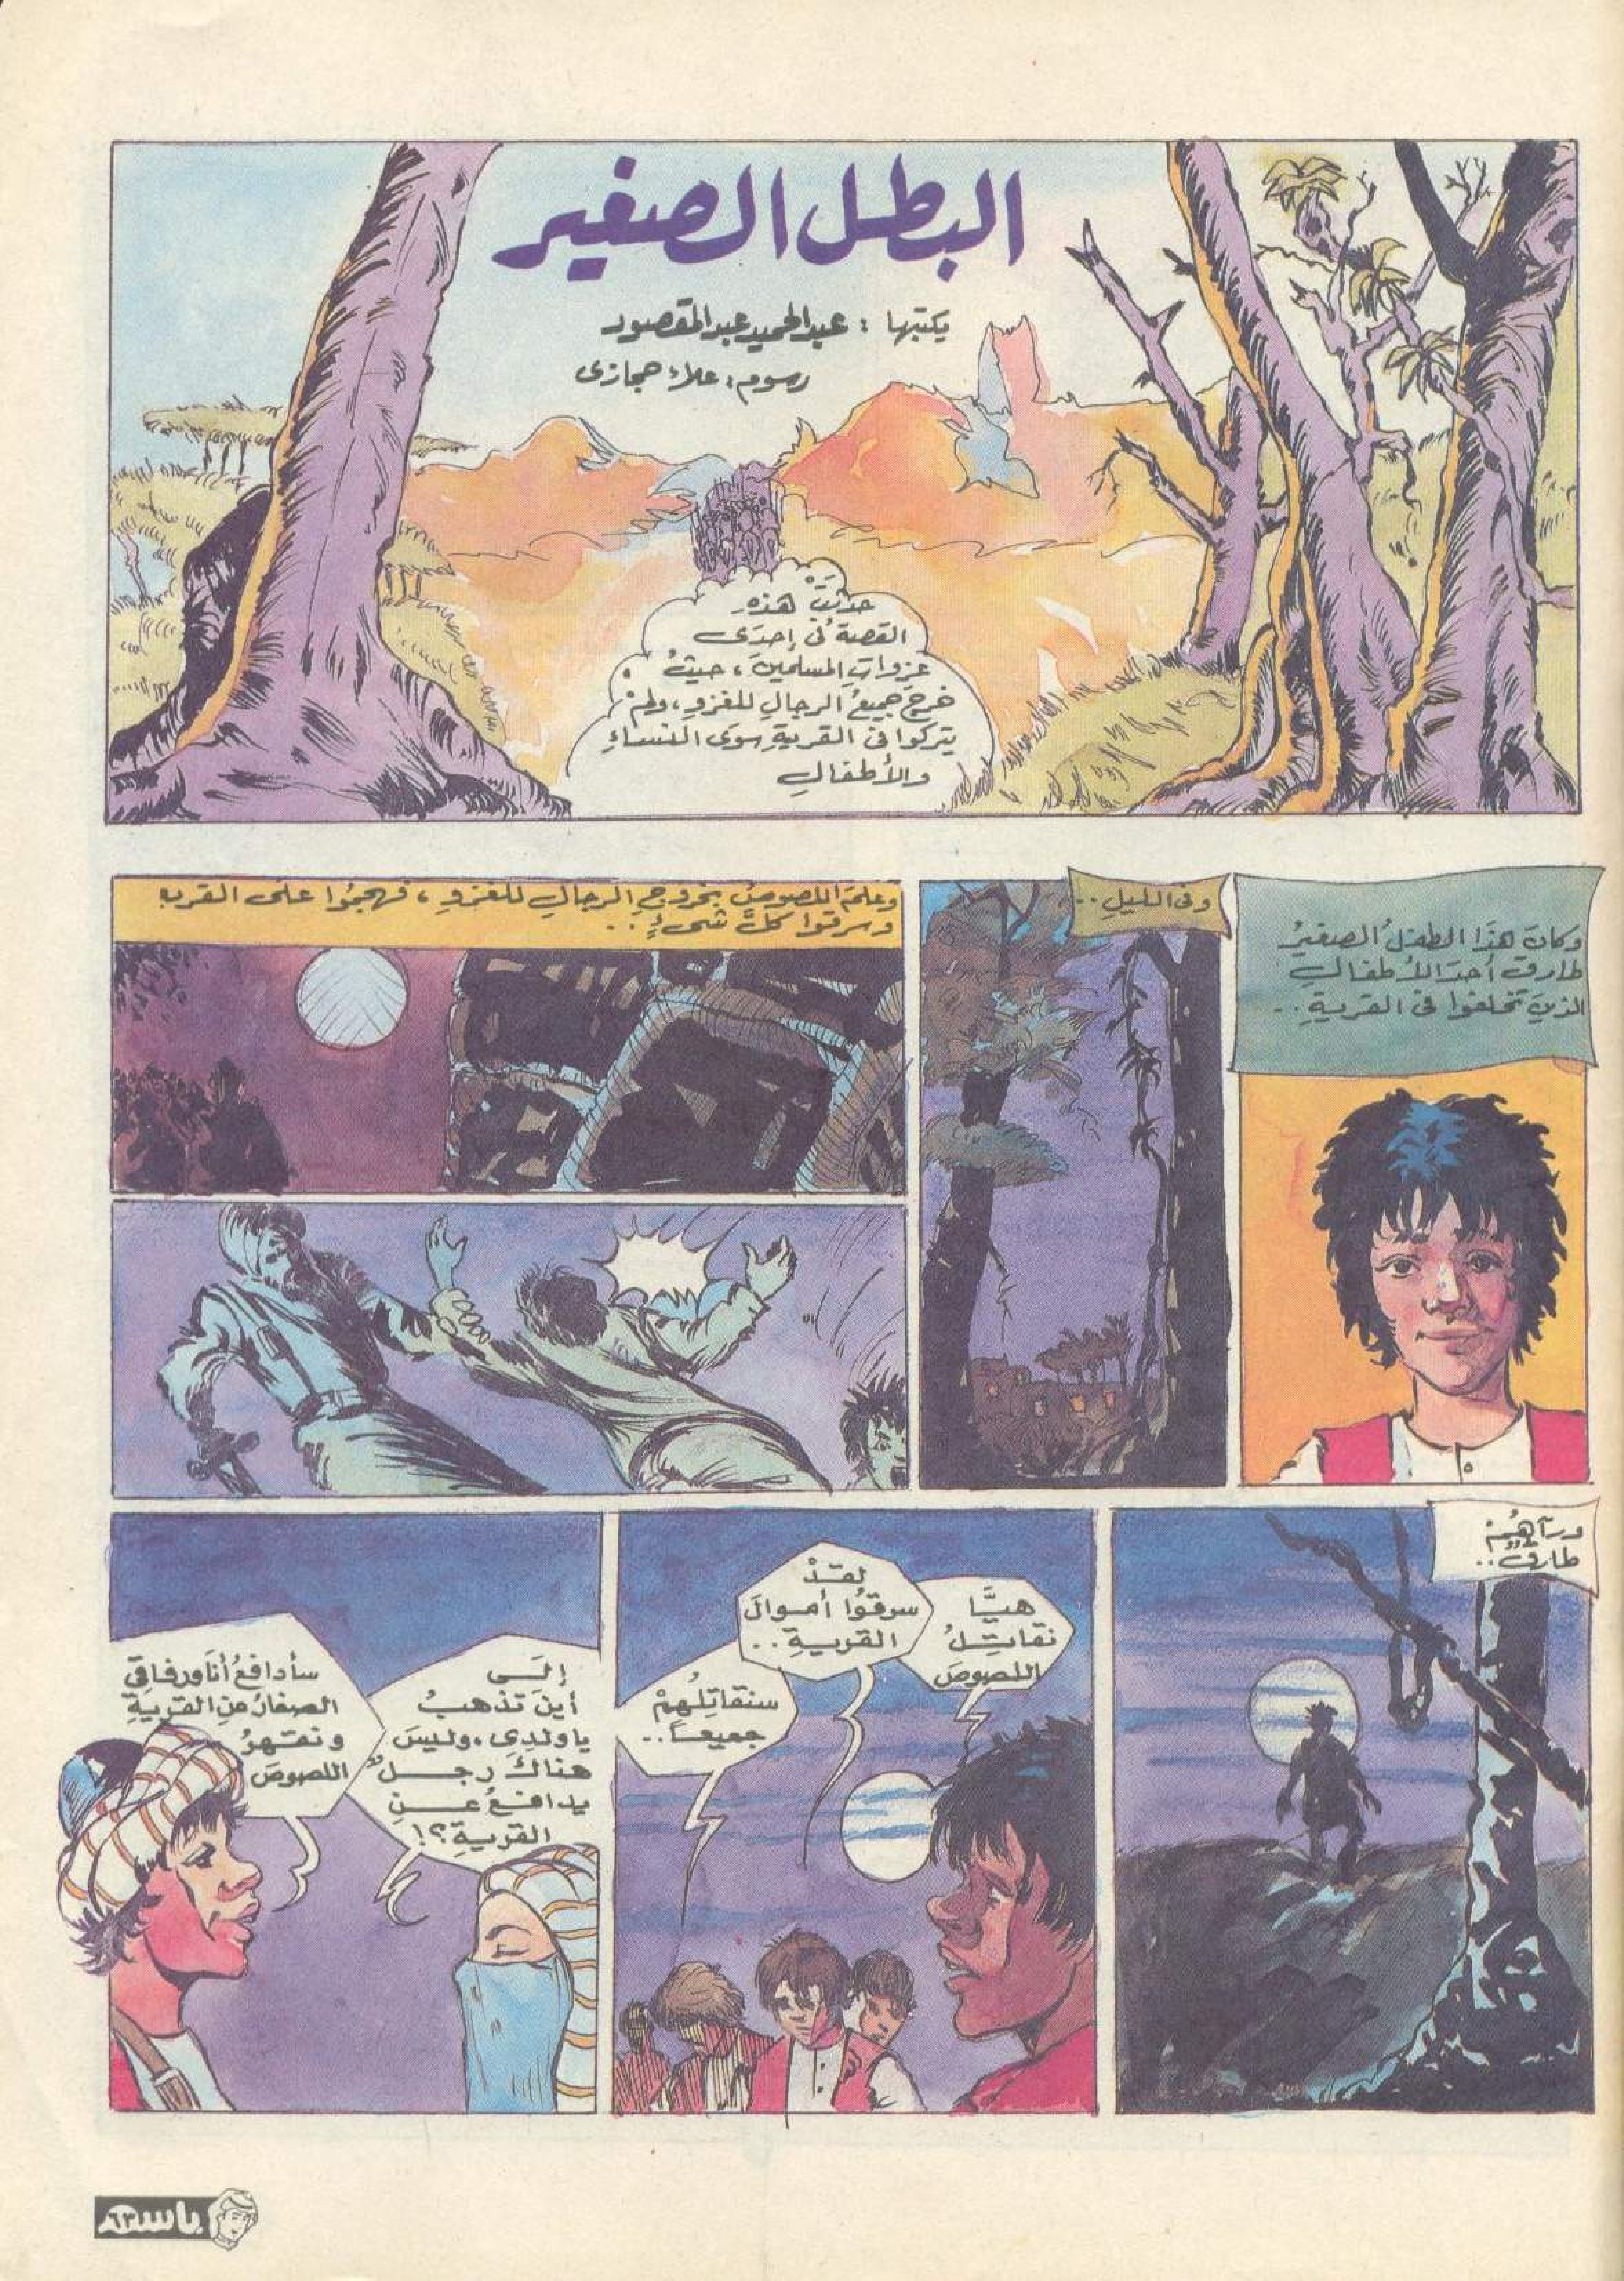 البطل الصغير
يكتبها : عبدالحميد عبدالمقصود
رسوم : علاء حجازى
حدثَتْ هذهِ
القصة فى إحدَى
غزواتِ المسلمينَ ، حيثُ
خرجَ جميعُ الرجالِ للغزوِ ، ولمْ
يتركوا فى القريةِ سوَى النساءِ
والأطفالِ
وكانَ هذَا الطفلُ الصغيرُ
طارق أحدَ الأطفالِ
الذينَ تخلفوا فى القريةِ . .
وفى الليلِ . .
وعلمَ اللصوصُ بخروجِ الرجالِ للغزوِ ، فهجمُوا على القريه
وسرقوا كلَّ شىءٍ . .
ورآهُمْ
طارقٌ . .
هيَّا
نقاتلُ
اللصوصَ
لقدْ
سرقُوا أموالَ
القريةِ . .
سنقاتلُهمْ
جميعاً . .
إلَى
أينَ تذهبُ
ياولدِى ، وليسَ
هناكَ رجلٌ
يدافعُ عنِ
القريةِ ؟!
سأدافعُ أنَا ورفاقى
الصغارُ عنِ القريَةِ
ونقهرُ
اللصوصَ
باسم
٦٣